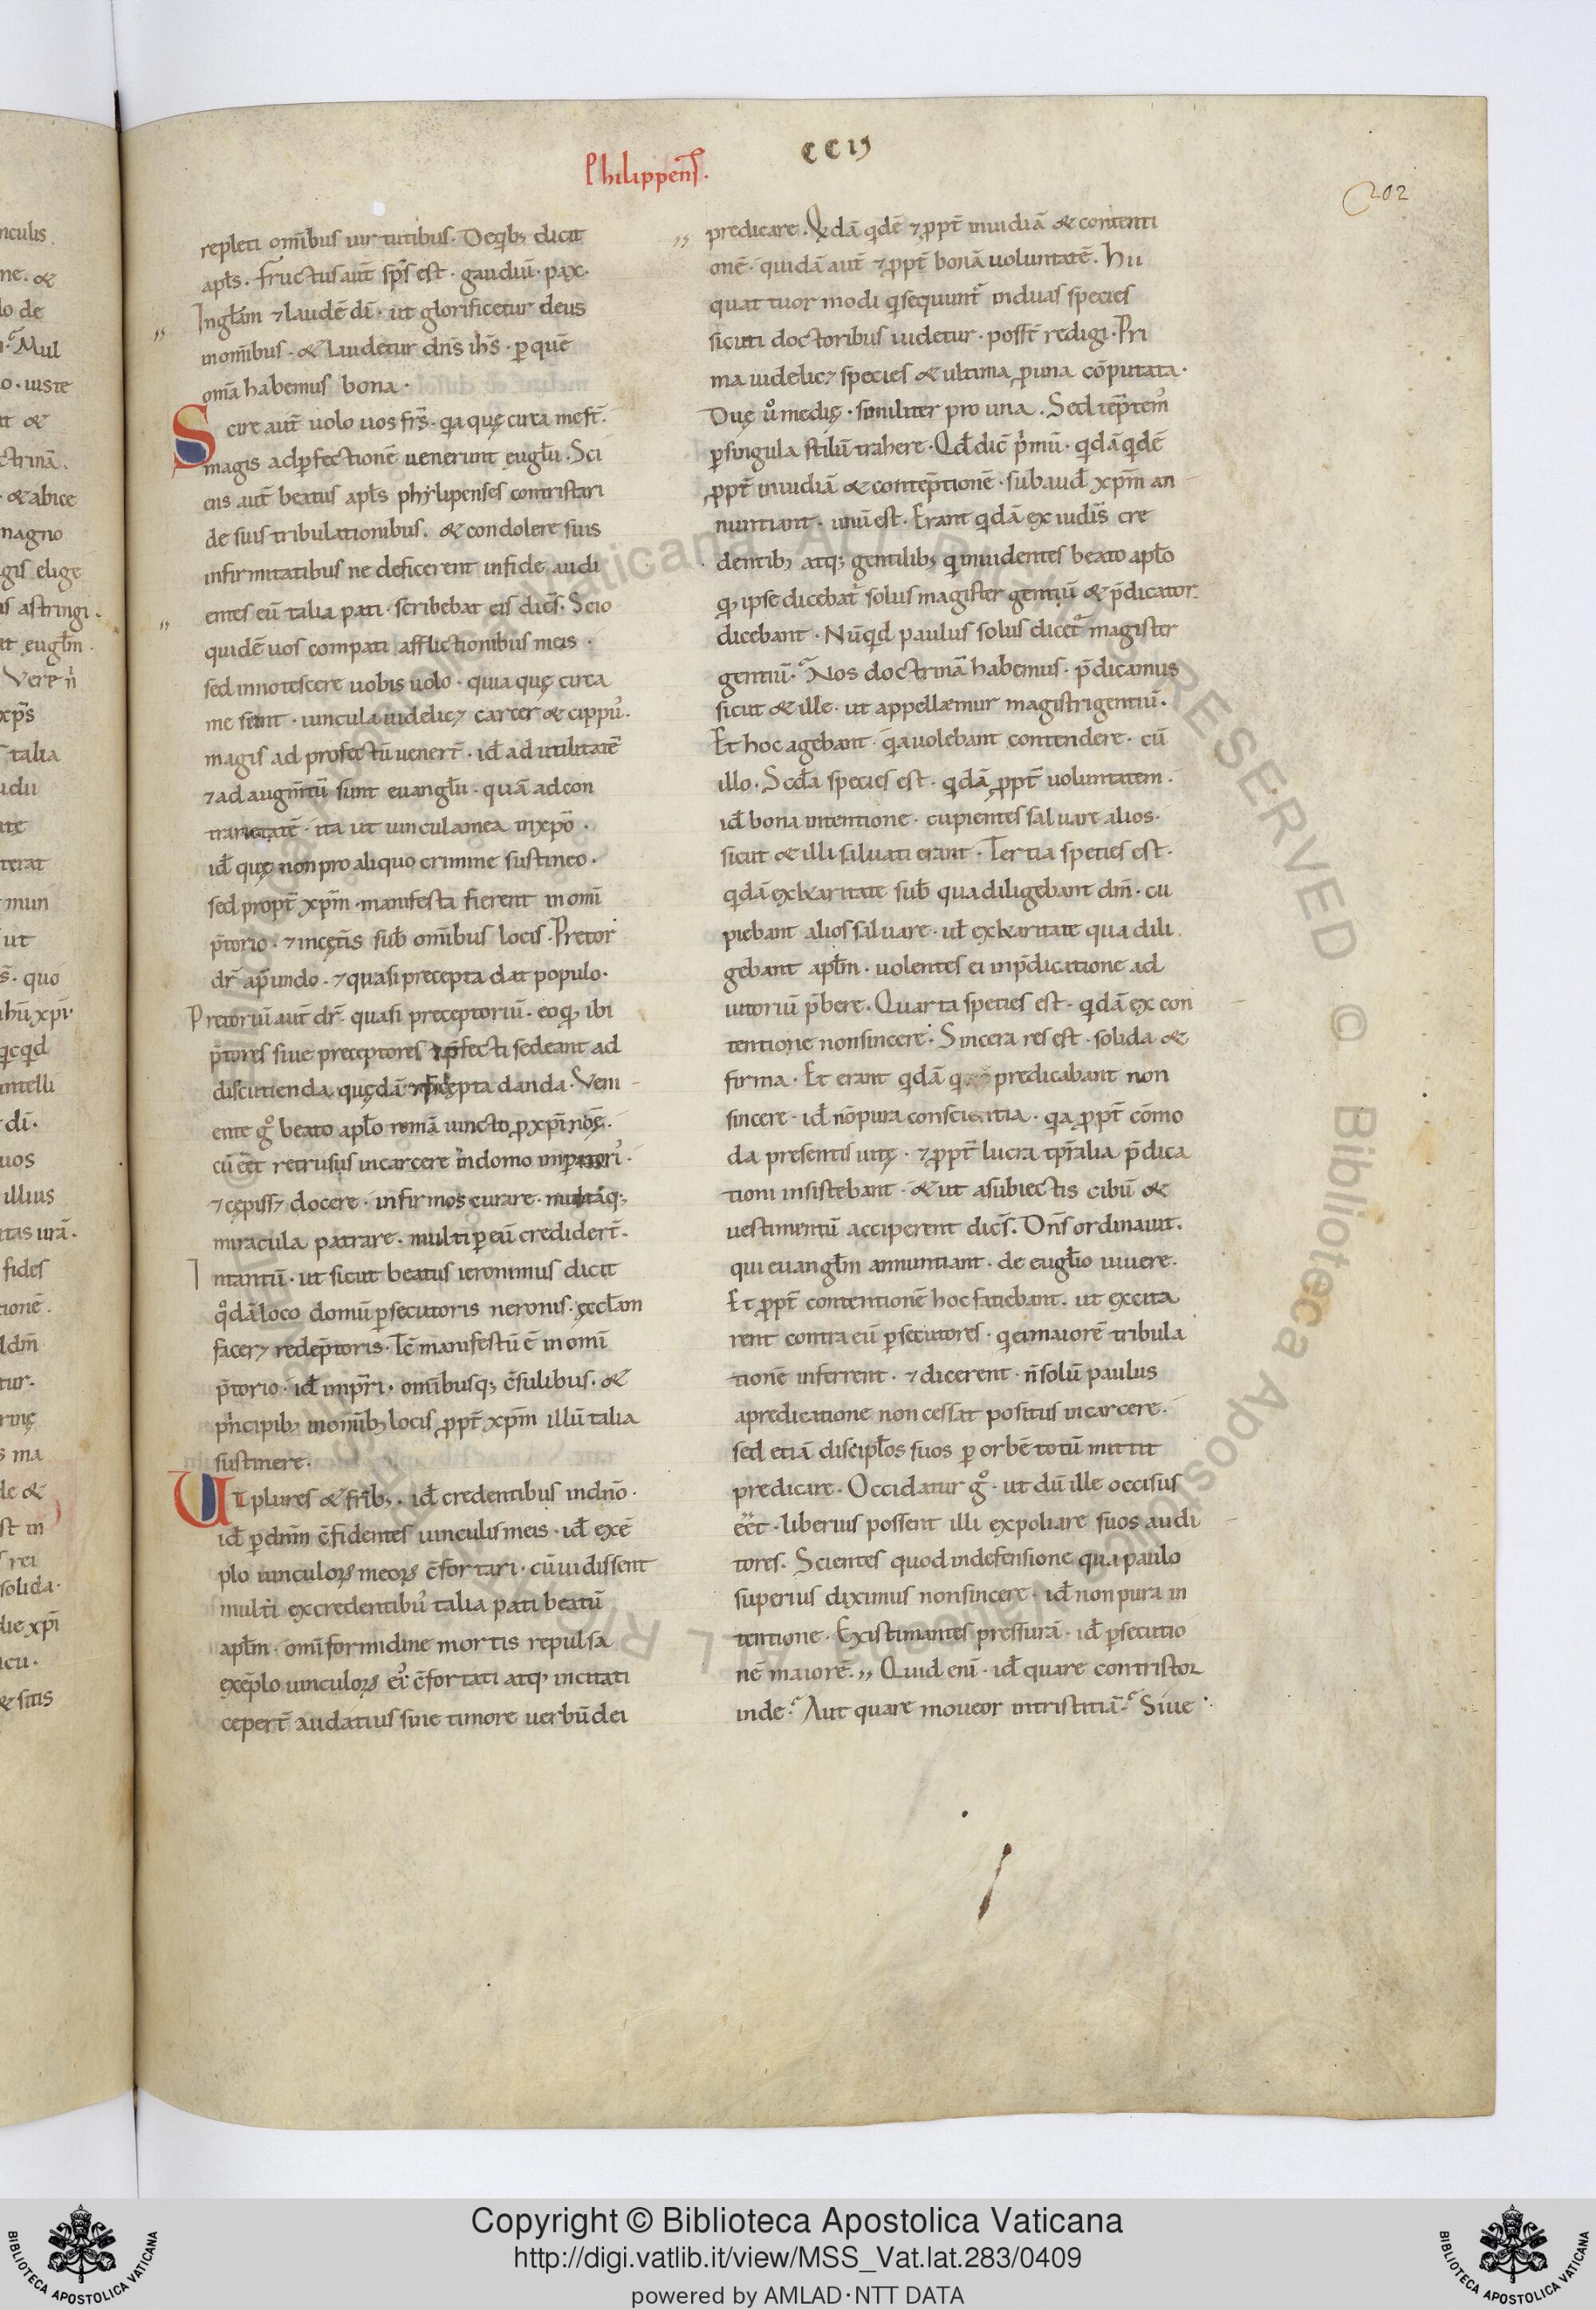 Philippenš.
CCIJ
202
repleti om̄ibus uirtutibus. De qib; dicit
apłs. Fructus aut̄ sp̄s est. gaudiū. pax.
In głam ⁊ laudē dī. ut glorificetur deus
in om̄ibus. & laudetur dn̄s ih̄s. p quē
om̄a habemus bona.
Scire aut̄ uolo uos fr̄s. qa quę circa me s̄t.
magis ad pfectionē uenerunt euglii. Sci
ens aut̄ beatus apłs phylipenses contristari
de suis tribulationibus. & condolere suis
infirmitatibus ne deficerent in fide audi
entes eū talia pati. scribebat eis dicē̄s. Scio
quidē uos compati afflictionibus meis.
sed innotescere uobis uolo. quia quę circa
me sunt. uincula uidelic; carcer & cippū.
magis ad profectū uener̄. id̄ ad utilitatē
⁊ ad augm̄tū sunt euanglii. quā ad con
trarietatē. ita ut uincula mea in xp̄o.
id̄ quę non pro aliquo crimine sustineo.
sed propt̄ xp̄m. manifesta fierent in om̄i
p̄torio. ⁊ in cęt̄is sub̄ om̄ibus locis. Pretor
dr̄ a p̄eundo. ⁊ quasi precepta dat populo.
Pretoriū aut̄ dr̄. quasi preceptoriū. eo q ibi
p̄tores siue preceptores ⁊ p̄fecti sedeant ad
discutienda quędā p̄cepta danda. Veni
ente g° beato apło romā uincto p xp̄i nōe.
cū eēt retrusus in carcere in domo impatori.
⁊ cępiss; docere. infirmos curare. multaq;
miracula patrare. multi p eū crediderī.
In tantū. ut sicut beatus ieronimus dicit
qodā loco domū psecutoris neronis. ęccłam
facer; redēptoris. Ic̄ manifestū ē in om̄i
p̄torio. id̄ imp̄ri. om̄ibusq; c̄sulibus. &
pncipib; in om̄ib; locis ppt̄ xp̄m illū talia
sustinere.
Ut plures & fr̄ib;. id̄ credentibus in dn̄o.
id̄ p dnm̄ c̄fidentes uinculis meis. id̄ exē
plo uinculoꝝ meoꝝ c̄fortari. cū uidissent
multi ex credentibꝰ talia pati beatū
apłm. om̄i formidine mortis repulsa
exēplo uinculoꝝ eiꝰ c̄fortati atq; incitati
ceper̄t audatius sine timore uerbū dei
predicare. Qdā qdē ⁊ ppt̄ inuidiā & contenti
onē. quidā aut̄ ⁊ ppt̄ bonā uoluntatē. Hii
quattuor modi q sequunt̄ in duas species
sicuti doctoribus uidetur. poss̄t redigi. Pri
ma uidelic; species & ultima p una cōputata.
Duę ů medię. similiter pro una. Sed tēptemꝰ
p singula stilū trahere. Qd̄ dic̄ pmū. qdā qdē
ppt̄ inuidiā & contēptionē. subaud̄ xp̄m an
nuntiant. unū est. Erant qdā ex iudīs cre
dentib; atq; gentilib; q inuidentes beato apło
q ipse dicebat̄ solus magister gentiū & p̄dicator.
dicebant. Nūqd paulus solus dicet̄ magister
gentiū? Nos doctrinā habemus. p̄dicamus
sicut & ille. ut appellæmur magistri gentiū.
Et hoc agebant. qa uolebant contendere. cū
illo. Scd̄a species est. qdā ppt̄ uoluntatem.
id̄ bona intentione. cupientes saluare alios.
sicut & illi saluati erant. Tertia species est.
qdā ex karitate sub̄ qua diligebant dm̄. cu
piebant alios saluare. ul̄ ex karitate qua dili
gebant apłm. uolentes ei in p̄dicatione ad
iutoriū p̄bere. Quarta species est. qdā ex con
tentione non sincere. Sincera res est. solida &
firma. Et erant qdā q predicabant non
sincere. id̄ nō pura conscientia. qa ppt̄ cōmo
da presentis uitę. ⁊ ppt̄ lucra tp̄ralia p̄dica
tioni insistebant. & ut a subiectis cibū &
uestimentū acciperent dicē̄s. Dn̄s ordinauit.
qui euangłm annuntiant. de eugło uiuere.
Et ppt̄ contentionē hoc fatiebant. ut excita
rent contra eū psecutores. q ei maiorē tribula
tionē inferrent. ⁊ dicerent. n̄ solū paulus
a predicatione non cessat positus in carcere.
sed etiā discipłos suos p orbē totū mittit
predicare. Occidatur g°. ut dū ille occisus
eēt. liberius possent illi expoliare suos audi
tores. Scientes quod in defensione qua paulo
superius diximus non sincere. id̄ non pura in
tentione. Existimantes pressurā. id̄ psecutio
nē maiorē. Quid enī. id̄ quare contristor
inde? Aut quare moueor in tristitiā? Siue
Copyright © Biblioteca Apostolica Vaticana
http://digi.vatlib.it/view/MSS_Vat.lat.283/0409
powered by AMLAD·NTT DATA